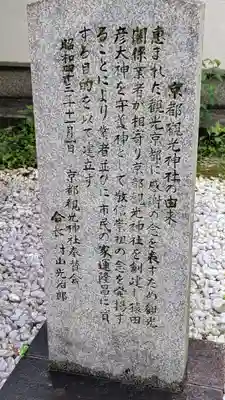 京都観光神社の由来
恵まれた観光京都に感謝の念を表すため観光
関係業者が相寄り京都観光神社を創建猿田
彦大神を守護神として敬信崇祖の念を揚す
ることにより業者並びに市民の家運隆昌に資
すを目的を以て建立す
昭和四十三年十一月一日 京都観光神社奉賛会
会長 村山光治郎